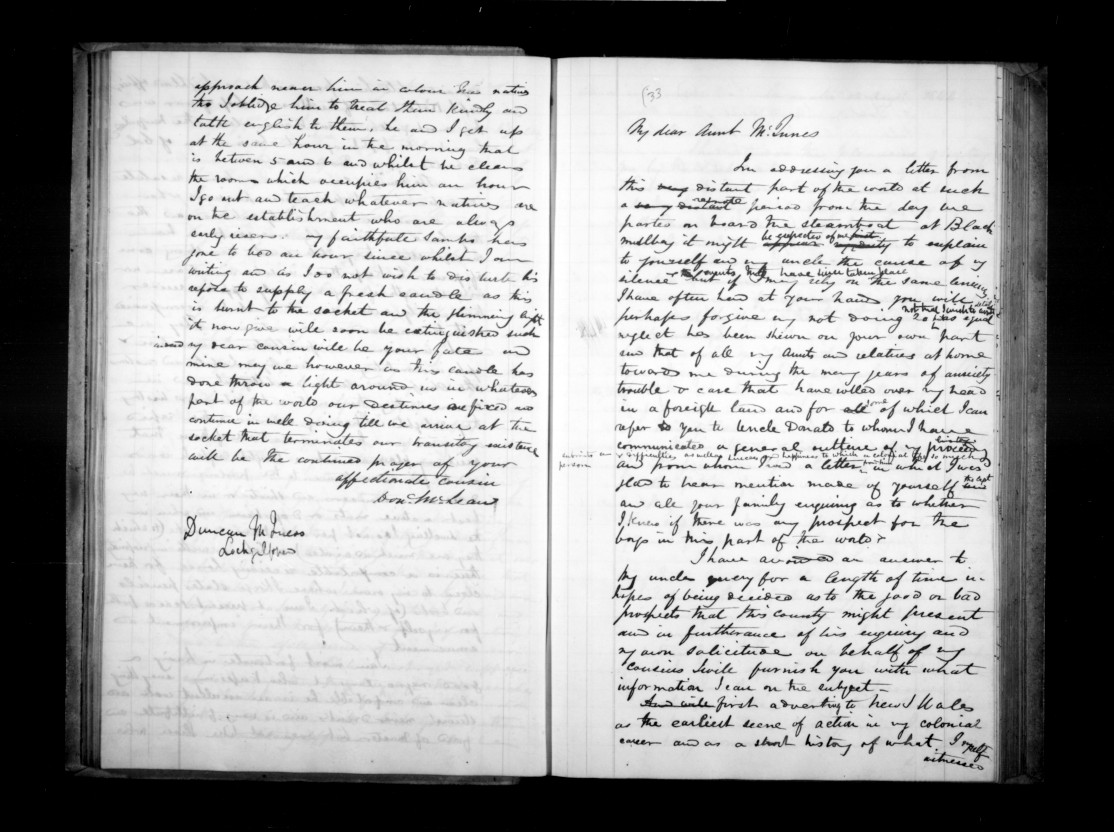 approach nearer him in colour this natives
tho I oblidge him to treat them kindly and
talk english to them. he and I get up
at the same hour in the morning that
is between 5 and 6 and whilst he cleans
the room which occupies him an hour
I go out and teach whatever natives are
on the establishment who are always
early risers. my faithfull Sambo has
gone to bed an hour since whilst I am
writing and as I do not wish to disturb his
repose to supply a fresh candle as this
is burnt to the socket and the glimmering light
it now gives will soon be extinguished such
indeed my dear cousin will be your fate and
mine may we however as this candle has
done throw a light around us in whatever
part of the world our destinies are fixed and
continue in well doing till we arrive at the
socket that terminates our transitory existence
will be the continued prayer of your
affectionate cousin
Don. McLean
Duncan McInnes
(33
My dear Aunt McInnes
In addressing you a letter from
this very distant part of the world at such
a very distant remote period from the day we
parted on board the steamboat at Black
mill bay it might be expected of me appear my duty to explain
to yourself and my uncle the cause of my
silence but if I may rely on the same
I have often had at your hand you will
perhaps forgive my not doing so as equal
neglect has been shewn on your own part
and that of all my aunts and relatives at home
towards me during the many years of anxiety
trouble & care that have rolled over my head
in a foreign land and for all of which I can
refer to you to Uncle Donald to whom I have
communicated a general outline of my
difficulties as well as success & happiness to which a colonial life is
and from whom I had a letter in which I was
person
glad to hear mention made of yourself
and all your family enquiring as to whether
I knew if there was any prospect for the
boys in this part of the world &
I have avoided an answer to
my uncles query for a length of time in
hopes of being decided as to the good or bad
prospects that this county might present
and in furtherance of his enquiry and
my own solicitude on behalf of my
cousins I will furnish you with what
information I can on the subject -
And will first adverting to New S Wales
as the earliest scene of action in my colonial
career and as a short history of what I myself
witnessed